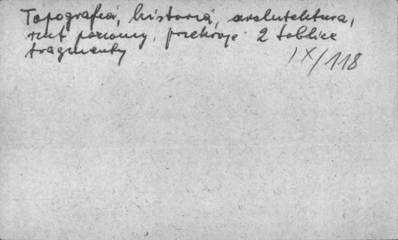 Topografia, historia, architektura,
rzut poziomy, przekroje 2 tablice
fragmenty
IX/118